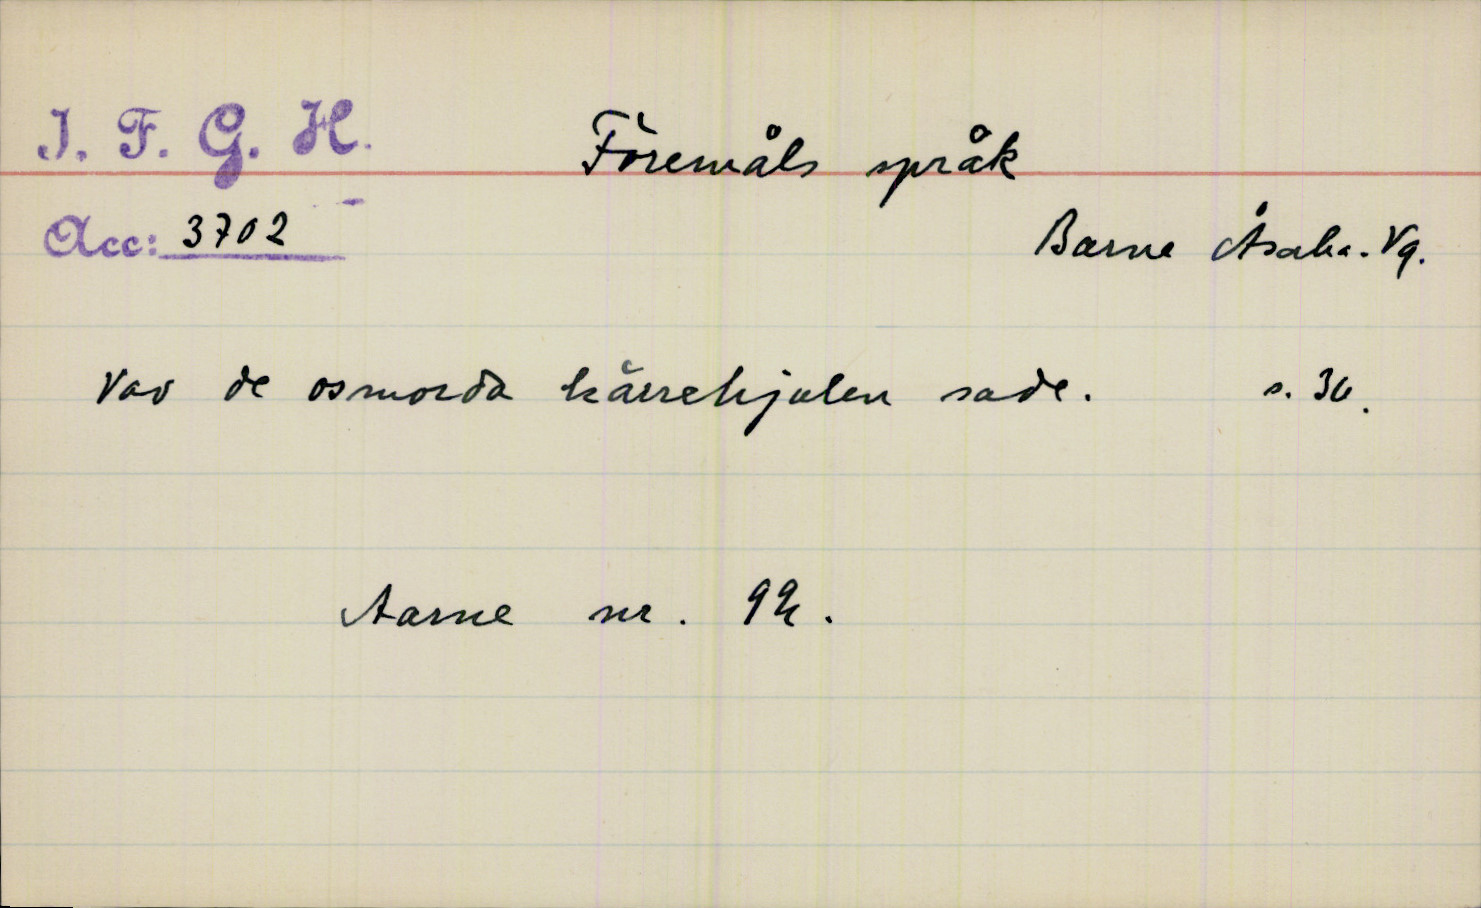 I. F. G. H.
Föremåls språk
Acc: 3702
Barne Åsaka. Vg.
Vad de osmorda kärrehjulen sade. s. 36.
Aarne nr. 92.